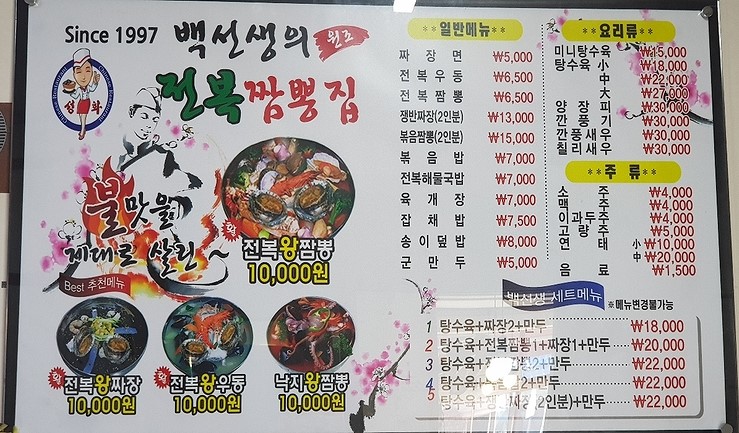 Since 1997 백선생의 원조
전복짬뽕집
성화
불맛을
제대로 살린~
전복왕짬뽕
10,000원
Best 추천메뉴
전복왕짜장
10,000원
전복왕우동
10,000원
낙지왕짬뽕
10,000원
**일반메뉴**
짜장면 ₩5,000
전복우동 ₩6,500
전복짬뽕 ₩6,500
쟁반짜장(2인분) ₩13,000
볶음짬뽕(2인분) ₩15,000
볶음밥 ₩7,000
전복해물국밥 ₩7,000
육개장 ₩7,000
잡채밥 ₩7,500
송이덮밥 ₩8,000
군만두 ₩5,000
**요리류**
미니탕수육 ₩15,000
탕수육 小 ₩18,000
中 ₩22,000
大 ₩27,000
양장피 ₩30,000
깐풍기 ₩30,000
깐풍새우 ₩30,000
칠리새우 ₩30,000
**주류**
소주 ₩4,000
맥주 ₩4,000
이과두주 ₩4,000
고량주 ₩5,000
연태 小 ₩10,000
中 ₩20,000
음료 ₩1,500
백선생 세트메뉴 ※메뉴변경불가능
1 탕수육+짜장2+만두 ₩18,000
2 탕수육+전복짬뽕1+짜장1+만두 ₩20,000
3 탕수육+ 2+만두 ₩22,000
4 탕수육+ 2+만두 ₩22,000
5 탕수육+ 짜장(2인분)+만두 ₩22,000